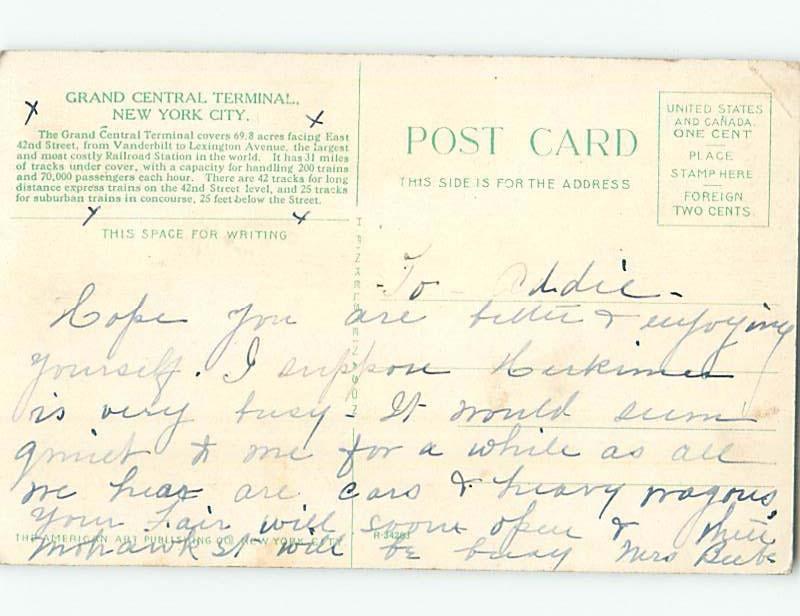 GRAND CENTRAL TERMINAL,
NEW YORK CITY.
The Grand Central Terminal covers 69.8 acres facing East
42nd Street, from Vanderbilt to Lexington Avenue, the largest
and most costly Railroad Station in the world. It has 31 miles
of tracks under cover, with a capacity for handling 200 trains
and 70,000 passengers each hour. There are 42 tracks for long
distance express trains on the 42nd Street level, and 25 tracks
for suburban trains in concourse, 25 feet below the Street.
THIS SPACE FOR WRITING
POST CARD
THIS SIDE IS FOR THE ADDRESS
UNITED STATES
AND CAÑADA
ONE CENT
PLACE
STAMP HERE
FOREIGN
TWO CENTS
To - Addie -
Hope you are better & enjoying
yourself. I suppose Herkimer
is very busy - It would seem
quiet to me for a while as all
we hear are cars & heavy wagons,
Your Fair will soon open &
Mohawk St will be busy Mrs Beebe
THE AMERICAN ART PUBLISHING CO. NEW YORK CITY
R-34283